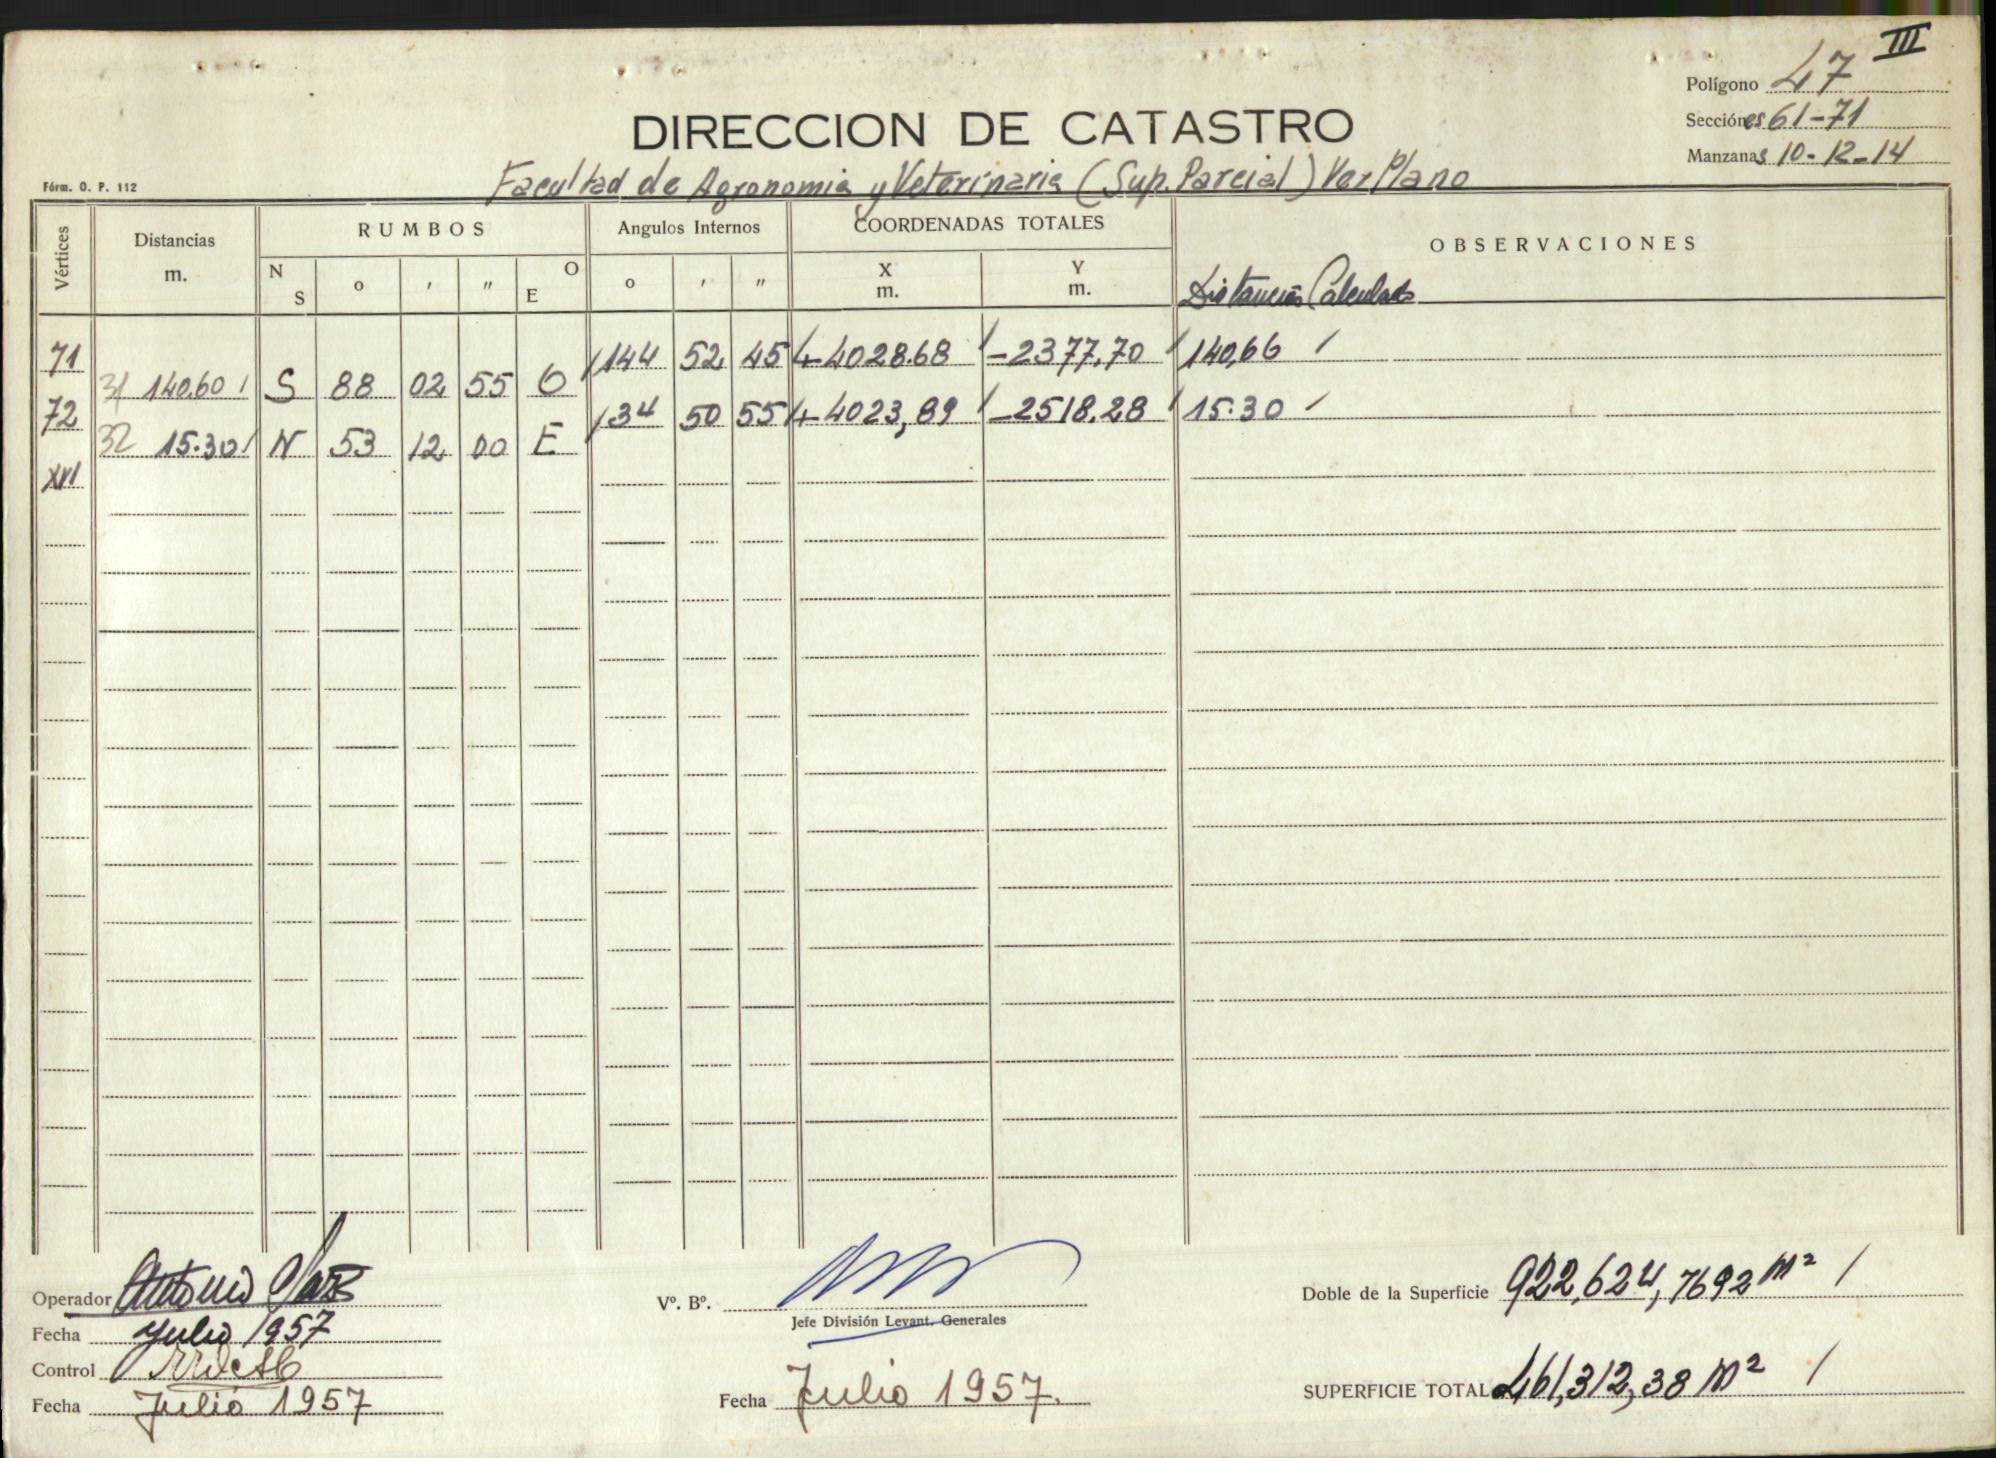 III
Polígono 47
Secciónes 61-71
Manzanas 10-12-14
DIRECCION DE CATASTRO
Fórm. O. P. 112
Facultad de Agronomia y Veterinaria (Sup. Parcial) Ver Plano
Vértices Distancias m. RUMBOS Angulos Internos COORDENADAS TOTALES OBSERVACIONES
N S o ' " O E o ' " X m. Y m. Distancias Calculadas
71 144 52 45 + 4028.68 -2377,70 140,66 /
31 140.60 / S 88 02 55 O
72 34 50 55 + 4023,89 -2518.28 15.30 /
32 15.30 / N 53 12 00 E
XVI
Operador Antonio
Fecha Julio 1957
Control
Fecha Julio 1957
Vº. Bº.
Jefe División Levant. Generales
Fecha Julio 1957.
Doble de la Superficie 922,624,7692 m² /
SUPERFICIE TOTAL 461,312,38 m² /